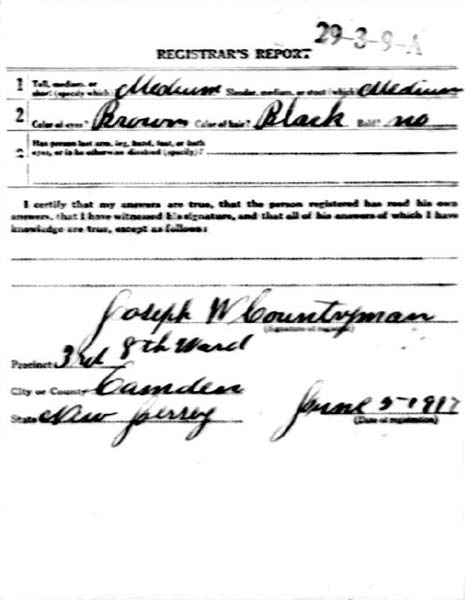 29-3-9-A
REGISTRAR'S REPORT
1 Tall, medium, or short (specify which)? Medium Slender, medium, or stout (which)? Medium
2 Color of eyes? Brown Color of hair? Black Bald? no
3 Has person lost arm, leg, hand, foot, or both
eyes, or is he otherwise disabled (specify)?
I certify that my answers are true, that the person registered has read his own
answers, that I have witnessed his signature, and that all of his answers of which I have
knowledge are true, except as follows:
Joseph W Countryman
(Signature of registrar)
Precinct 3rd 8th Ward
City or County Camden
State New Jersey June 5-1917
(Date of registration)